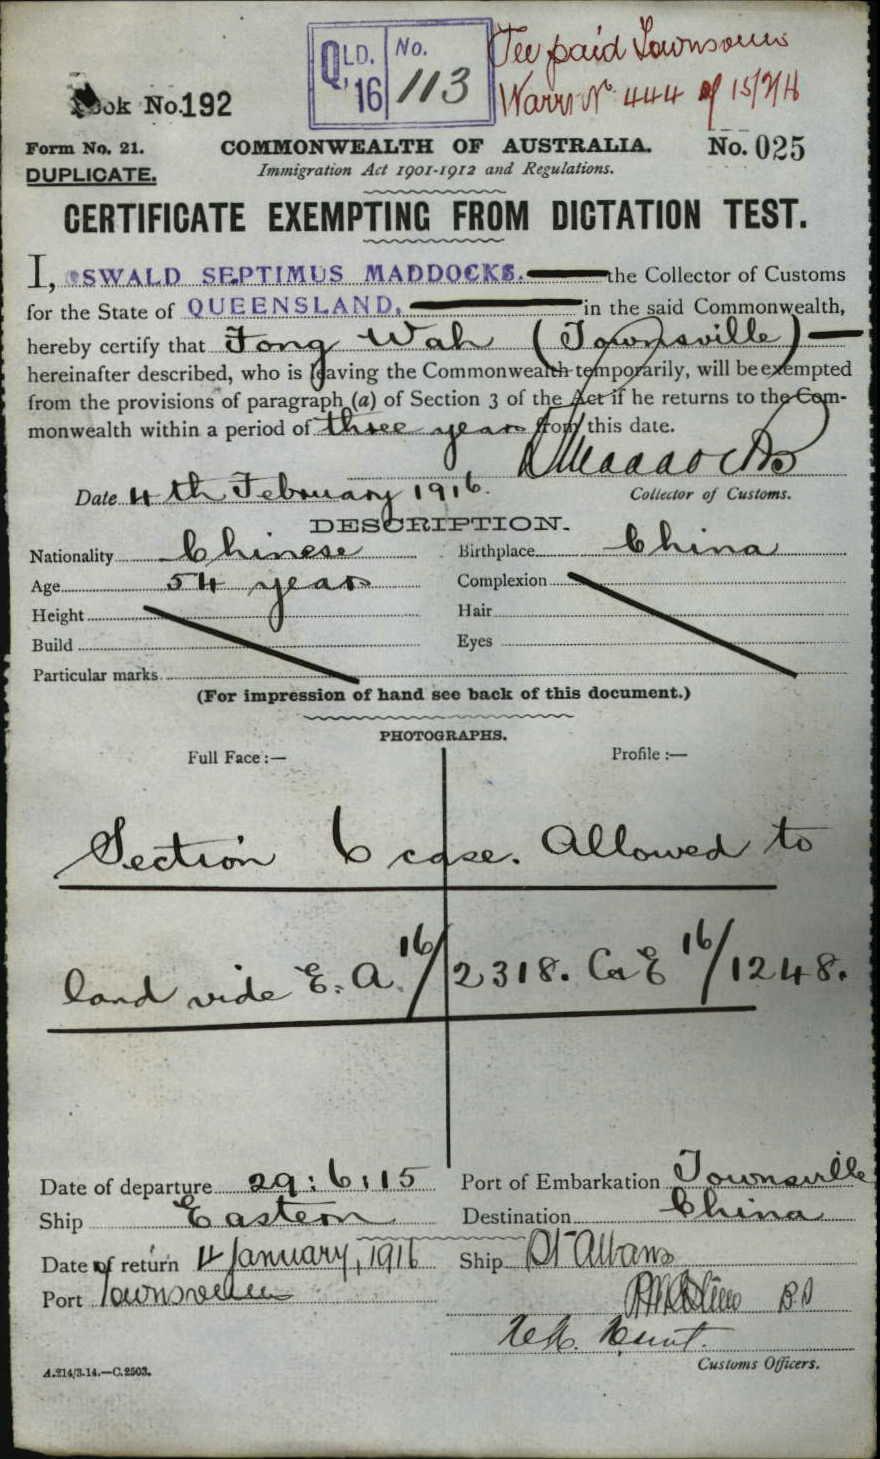 QLD. '16 No. 113
Fee paid Townsville
Warrt No. 444 of 15/2/16
Book No. 192
Form No. 21. COMMONWEALTH OF AUSTRALIA. No. 025
DUPLICATE. Immigration Act 1901-1912 and Regulations.
CERTIFICATE EXEMPTING FROM DICTATION TEST.
I, OSWALD SEPTIMUS MADDOCKS. the Collector of Customs
for the State of QUEENSLAND, in the said Commonwealth,
hereby certify that Fong Wah (Townsville)
hereinafter described, who is leaving the Commonwealth temporarily, will be exempted
from the provisions of paragraph (a) of Section 3 of the Act if he returns to the Com-
monwealth within a period of three years from this date.
Maddocks
Date 4th February 1916. Collector of Customs.
DESCRIPTION.
Nationality Chinese Birthplace China
Age 54 years Complexion
Height Hair
Build Eyes
Particular marks
(For impression of hand see back of this document.)
PHOTOGRAPHS.
Full Face :— Profile :—
Section 6 case. Allowed to
land vide E. A. 16/2318. Ca E 16/1248.
Date of departure 29:6:15 Port of Embarkation Townsville
Ship Eastern Destination China
Date of return 4 January, 1916 Ship St Albans
Port Townsville
Customs Officers.
A.214/3.14.—C.2503.